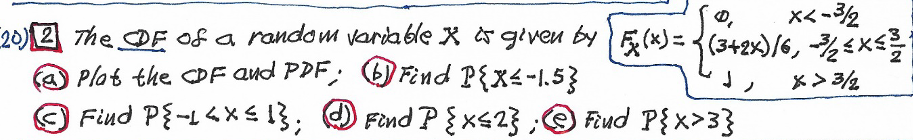 (20) 2 The CDF of a random variable X is given by F_X(x) = { 0, x<-3/2
(3+2x)/6, -3/2≤x≤3/2
1, x>3/2
(a) Plot the CDF and PDF; (b) Find P{X≤-1.5}
(c) Find P{-1<x≤1}; (d) Find P{x≤2}; (e) Find P{x>3}